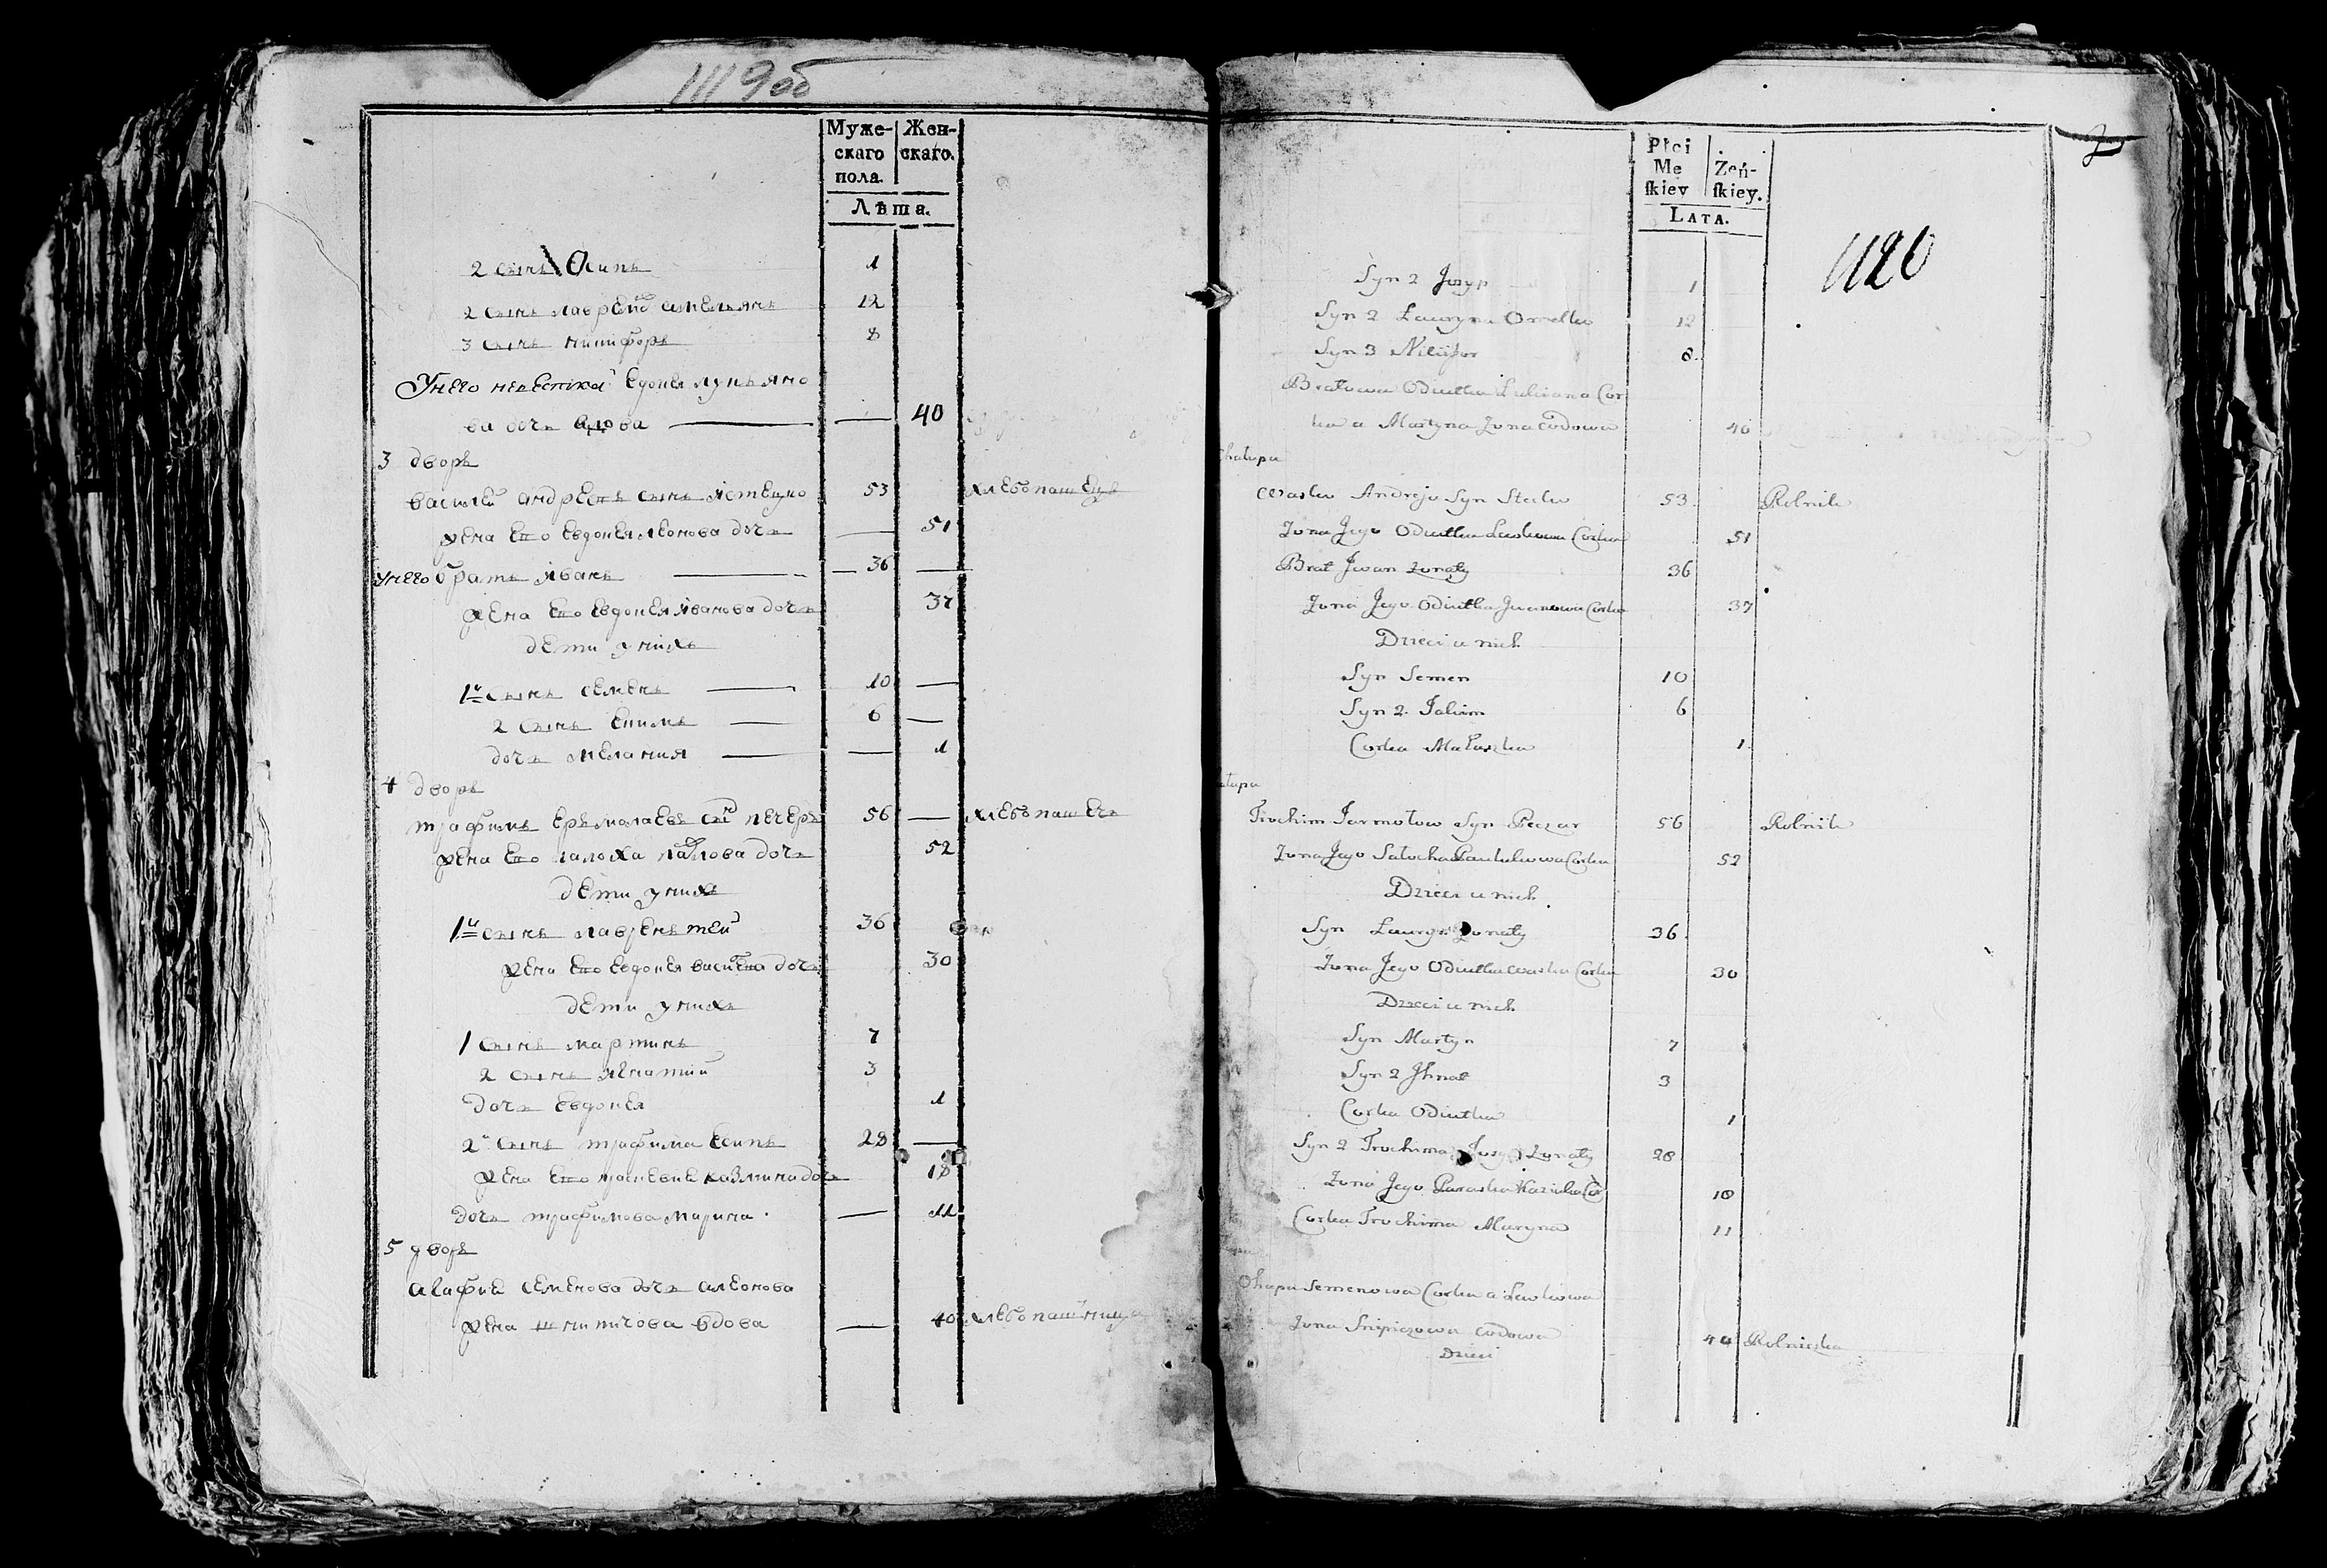 1119об
Муже-
скаго
пола.
Жен-
скаго.
Лѣта.
2 сынъ Осипъ 1
2 сынъ лаврена емельянъ 12
3 сынъ никифоръ 8
У него невестка евдокея лукьяно
ва дочь вдова — — 40
3 дворъ
василей андреевъ сынъ 53 хлебопашецъ
жена ево евдокея леонова дочь — 51
У него братъ іванъ — — 36 —
жена ево евдокея іванова дочь 37
дети у нихъ
1й сынъ семенъ — 10 —
2 сынъ екимъ — 6 —
дочь мелания — — 1
4 дворъ
трафимъ ермолаевъ сынъ печеръ 56 — хлебопашецъ
жена ево палова дочь 52
дети у нихъ
1й сынъ лаврентей 36
жена ево евдокея василева дочь 30
дети у нихъ
1 сынъ мартинъ 7
2 сынъ игнатий 3
дочь евдокея 1
2й сынъ трафима есипъ 28 —
жена ево казмина дочь 18
дочь трафимова марина — 11
5 дворъ
агафия семенова дочь а леонова
жена вдова — 40 хлебопашница
Płci
Me
ſkiey
Zeń-
ſkiey.
LATA.
1120
Syn 2 Jozyp 1
Syn 2 Lauryna Omelko 12
Syn 3 Nikifor 8
Bratowa Odiutka Lukiana Cor
ka a Martyna Zona Wdowa 40
Chałupa
Wasko Andreja Syn Stecko 53 Rolnik
Zona Jego Odiutka Lewkowa Corka 51
Brat Jwan Zonaty 36
Zona Jego Odiutka Jwanowa Corka 37
Dzieci u nich
Syn Semen 10
Syn 2 Jakim 6
Corka Małaszka 1
ałupa
Trochim Jarmołow Syn Peczar 56 Rolnik
Zona Jego Sałocha Pawlukowa Corka 52
Dzieci u nich
Syn Lauryn Zonaty 36
Zona Jego Odiutka Waska Corka 30
Dzieci u nich
Syn Martyn 7
Syn 2 Jhnat 3
Corka Odiutka 1
Syn 2 Trochima Jozyp Zonaty 28
Zona Jego Paraska Kaziuka Cor 18
Corka Trochima Maryna 11
Ohapa Semenowa Corka a Lewkowa
Zona Wdowa 40 Rolniczka
Dzieci